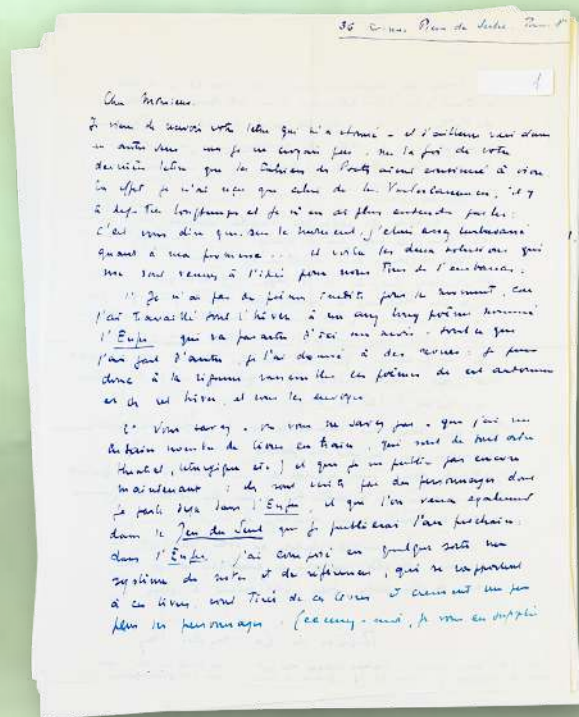 36 Pierre de Serbie. Paris 8e
1
Cher Monsieur.
Je viens de recevoir votre lettre qui m'a charmé - et d'ailleurs ravi dans
un autre sens car je ne croyais pas, sur la foi de votre
dernière lettre que les Cahiers des Poètes aient continué à vivre
En effet je n'ai reçu que celui de la , il y
a déjà très longtemps et je n'en ai plus entendu parler :
c'est vous dire que sur le moment, j'étais assez embarrassé
quant à ma promesse ... et voilà les deux solutions qui
me sont venues à l'idée pour nous tirer de l'embarras :
1° Je n'ai pas de poèmes inédits pour le moment, car
j'ai travaillé tout l'hiver à un assez long poème nommé
l'Enfer qui va paraître d'ici un mois. Tout ce que
j'ai fait d'autre, je l'ai donné à des revues : je puis
donc à la rigueur rassembler les poèmes de cet automne
et de cet hiver, et vous les envoyer
2° Vous savez - ou vous ne savez pas - que j'ai un
certain nombre de livres en train, qui sont de tout ordre
théatral, liturgique etc.) et que je ne publie pas encore
maintenant : ils sont écrits par des personnages dont
je parle déjà dans l'Enfer, et que l'on verra également
dans le Jeu du Seul que je publierai l'an prochain :
dans l'Enfer, j'ai composé en quelque sorte un
système de notes et de références, qui se rapportent
à ces livres, sont tirés de ces livres et un peu
plus les personnages. (excusez-moi, je vous en supplie